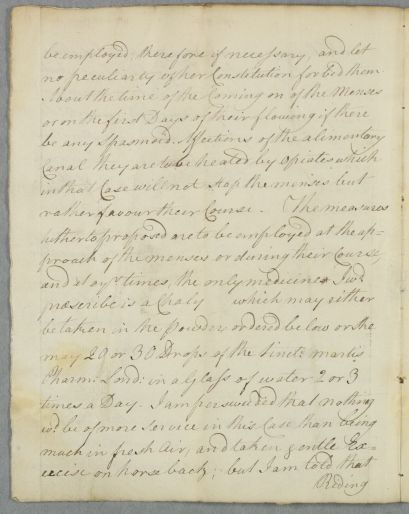 be employed, therefore if necessary, and let
no peculiarity of her Constitution forbid them
About the time of the Coming on of the Menses
or on the first Days of their flowing if there
be any Spasmodic Affections of the alimentary
Canal they are to be treated by Opiates which
in that Case will not stop the menses but
rather favour their Course. The measures
hitherto proposed are to be employed at the ap=
proach of the menses or during their Course,
and at oyr times, the only medicine I wd
præscribe is a Chaly which may either
be taken in the Powder ordered below or she
may 20 or 30 Drops of the Tinct: martis
Pharm: Lond: in a Glass of water 2 or 3
times a Day. I am perswaded that nothing
wd be of more Service in this Case than being
much in fresh Air, and taken gentle Ex=
ercise on horse back; but I am told that
Reding